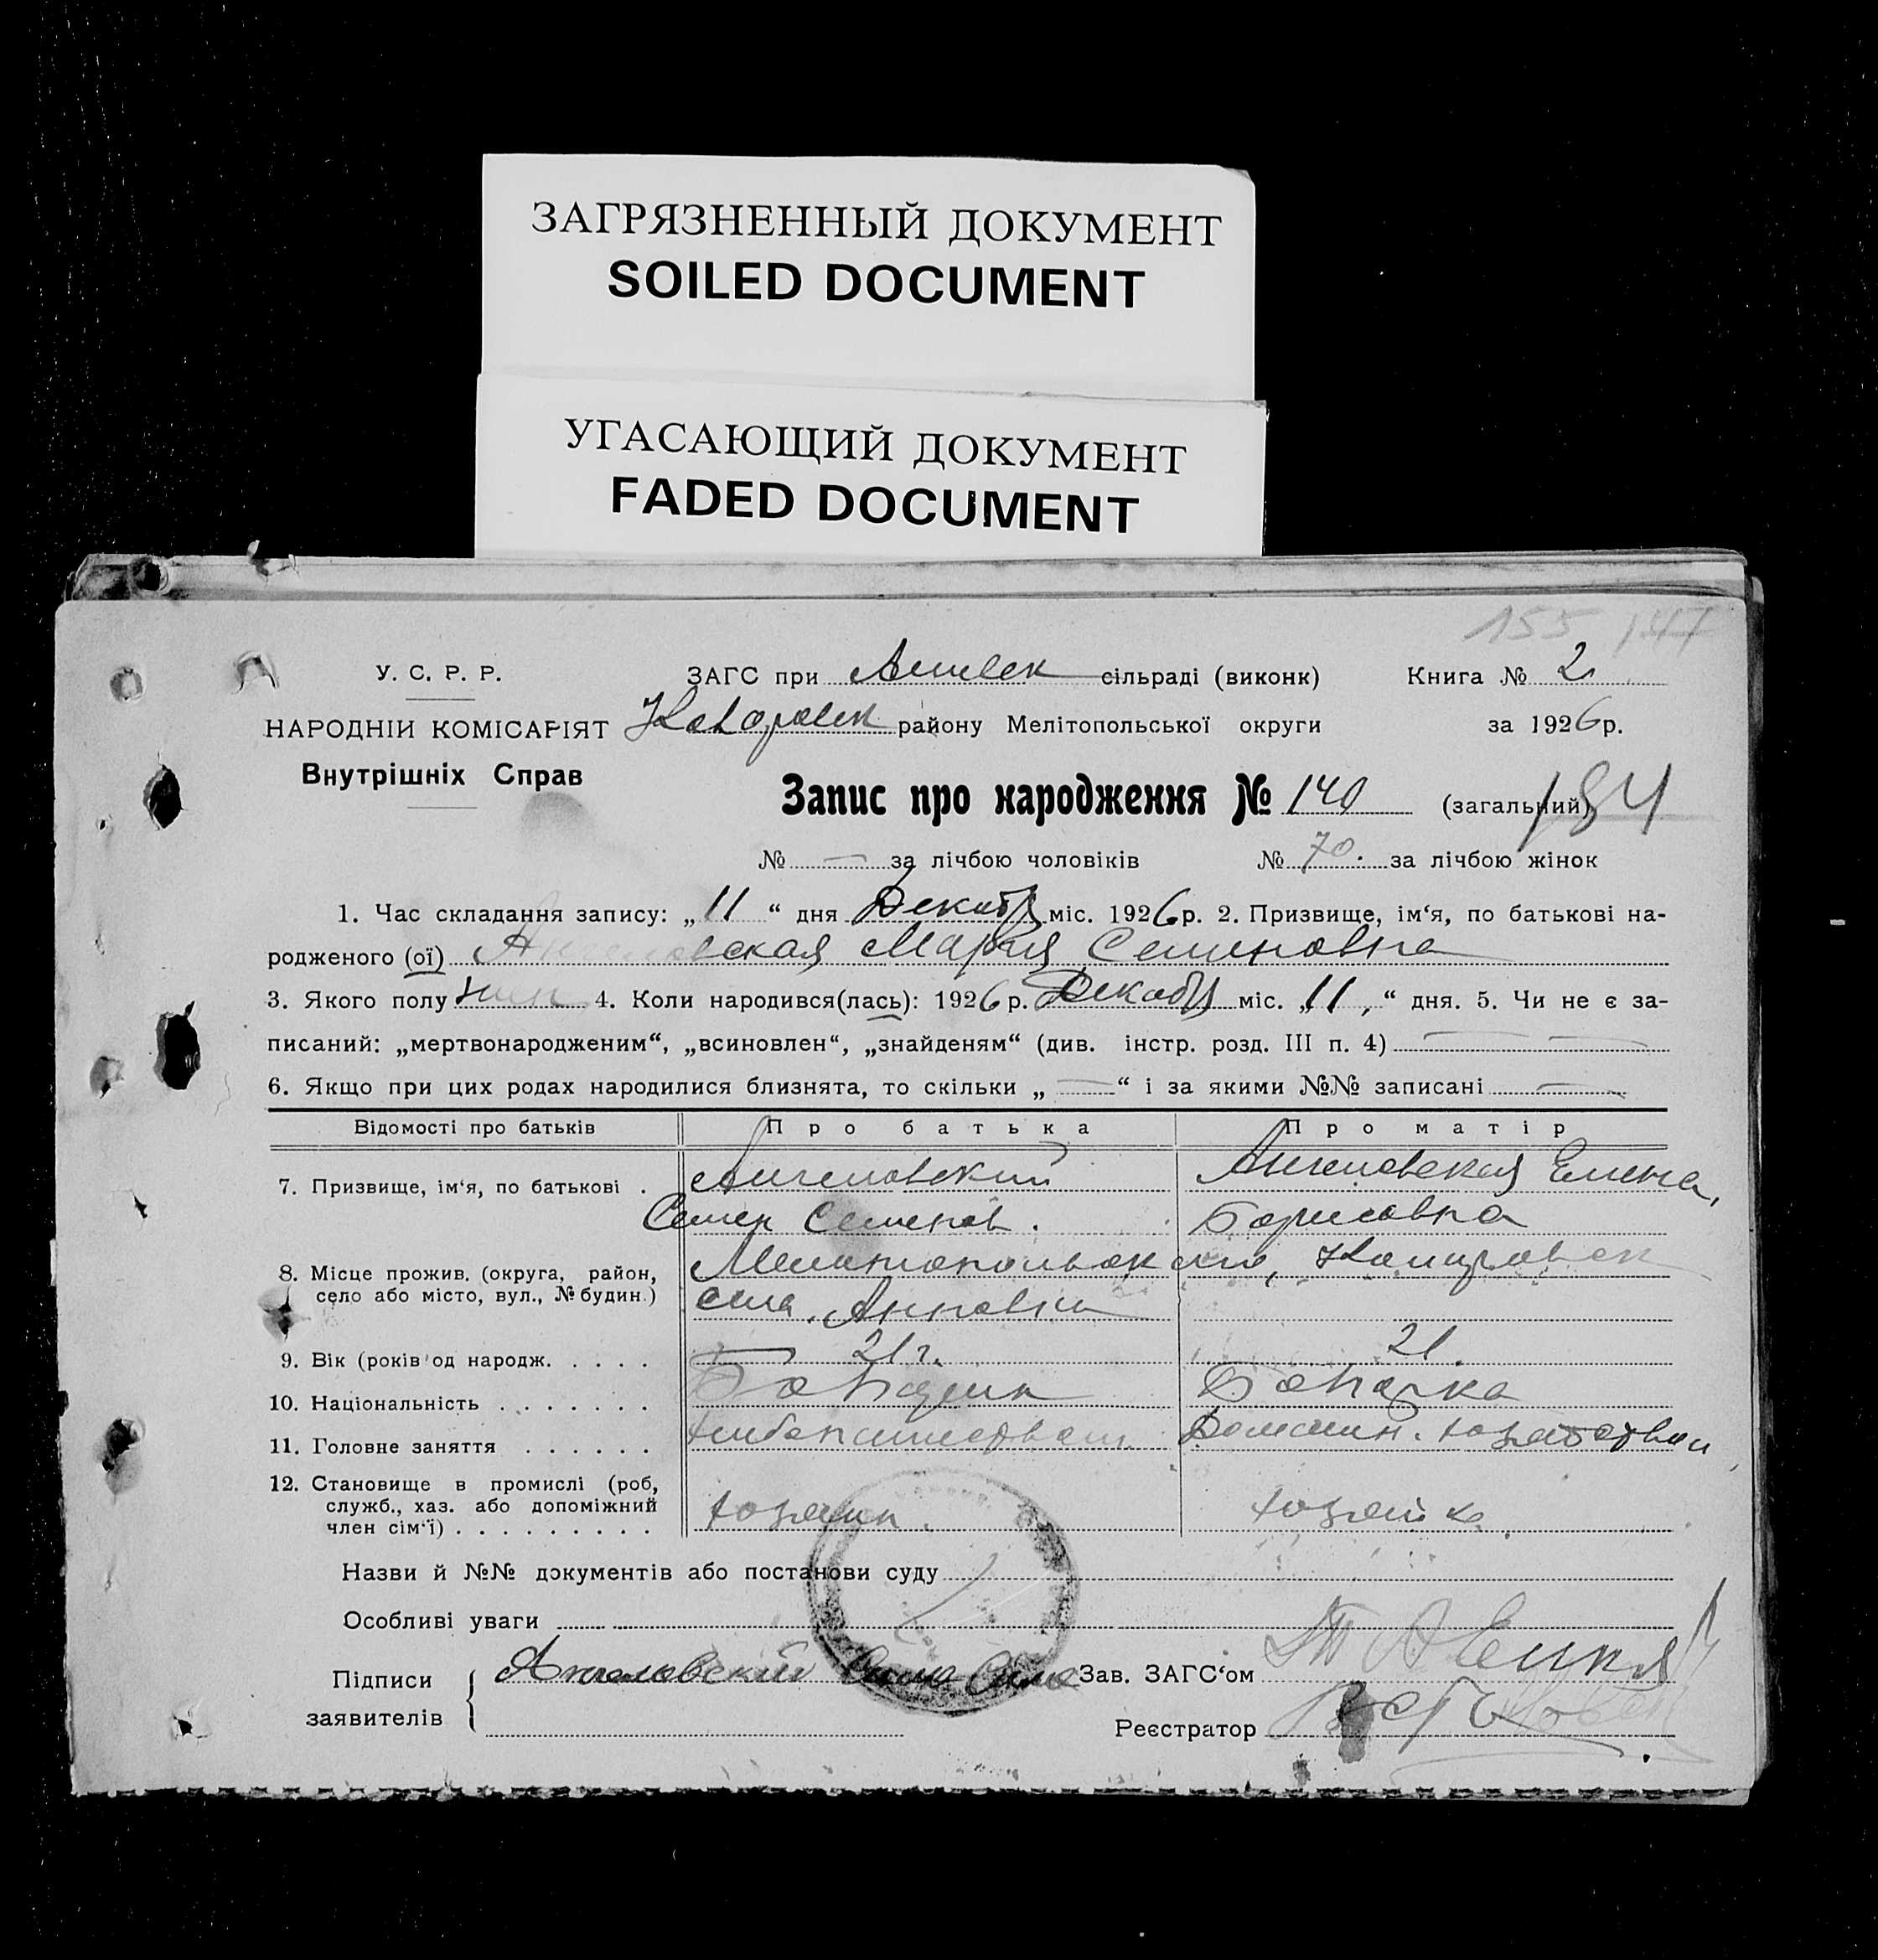 ЗАГРЯЗНЕННЫЙ ДОКУМЕНТ
SOILED DOCUMENT
УГАСАЮЩИЙ ДОКУМЕНТ
FADED DOCUMENT
155 147
У. С. Р. Р. ЗАГС при сільраді (виконк) Книга № 2
НАРОДНІЙ КОМІСАРІЯТ району Мелітопольської округи за 1926 р.
Внутрішніх Справ
Запис про народження № 140 (загальний) 184
№ — за лічбою чоловіків № 70. за лічбою жінок
1. Час складання запису: „11“ дня Декабр міс. 1926 р. 2. Призвище, ім‘я, по батькові на-
родженого (ої) Ангеловская Мария Семеновна
3. Якого полу жен 4. Коли народився(лась): 1926 р. Декабр міс. „11“ дня. 5. Чи не є за-
писаний: „мертвонародженим“, „всиновлен“, „знайденям“ (див. інстр. розд. III п. 4) — —
6. Якщо при цих родах народилися близнята, то скільки „—“ і за якими №№ записані —
Відомості про батьків Про батька Про матір
7. Призвище, ім‘я, по батькові . Ангеловский Ангеловская Елена,
Семен Семенов. Борисовна
8. Місце прожив. (округа, район,
село або місто, вул., № будин.) села Анновки
9. Вік (років од народж. . . . . 21 г. 21.
10. Національність . . . . . . . Болгарин Болгарка
11. Головне заняття . . . . . . Хлебопашеством Домашн. хозяйством
12. Становище в промислі (роб,
служб., хаз. або допоміжний
член сім‘ї) . . . . . . . . . хозяин. хозяйка.
Назви й №№ документів або постанови суду
Особливі уваги
Підписи
заявителів Ангеловский Зав. ЗАГС‘ом
Реєстратор